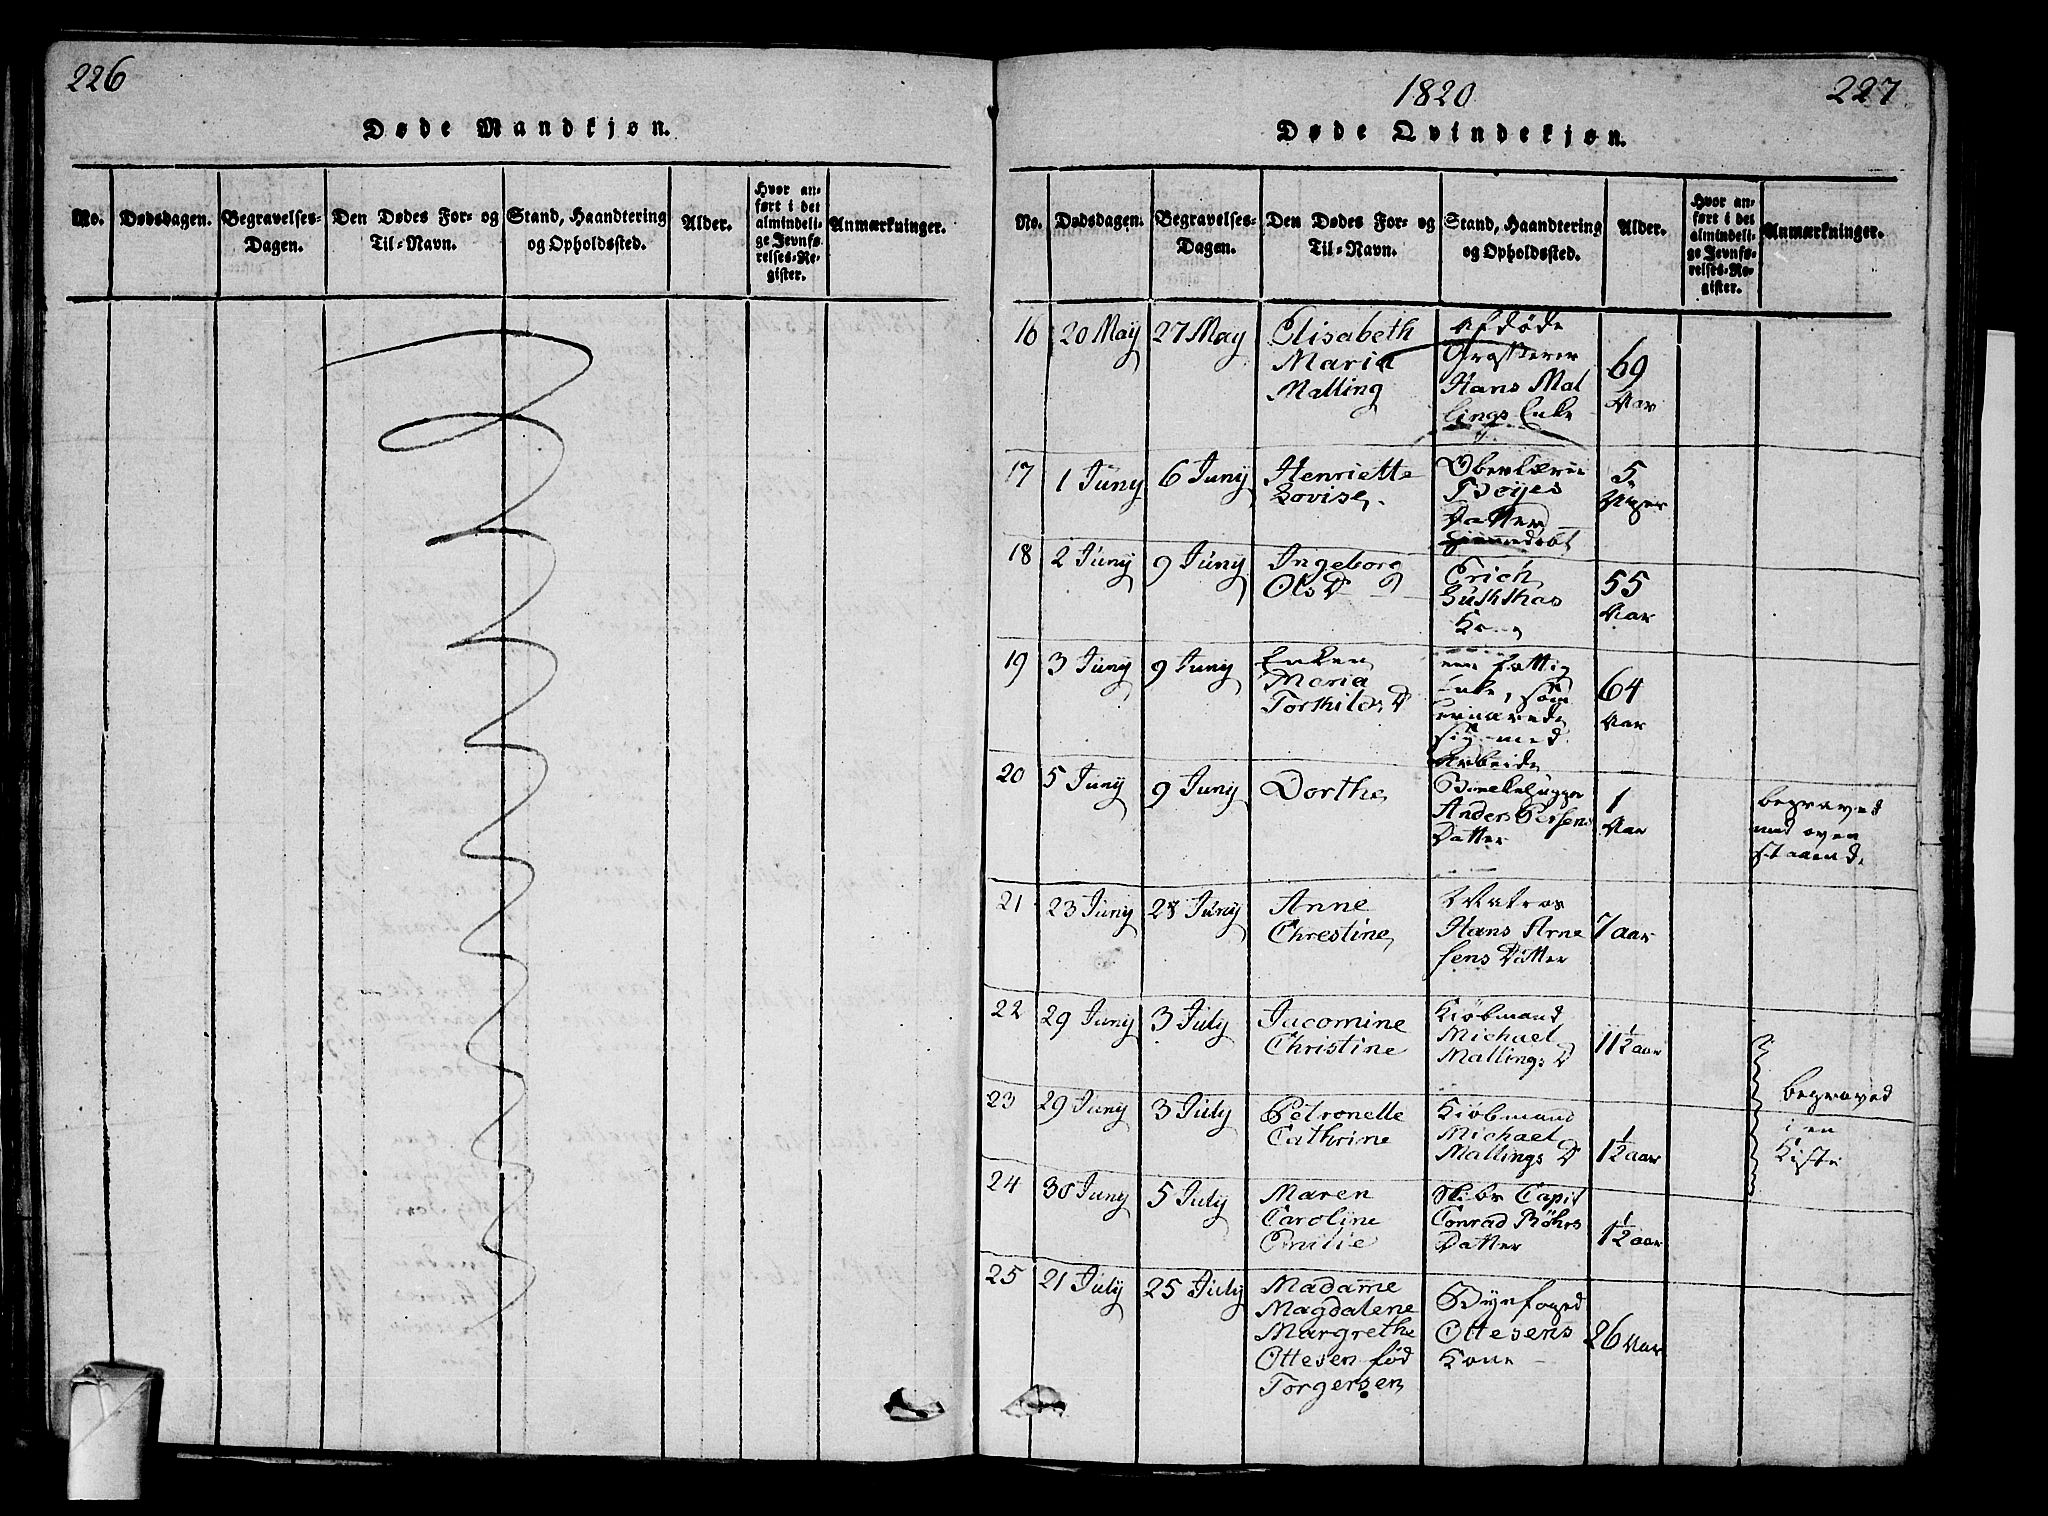 226
Døde Mandkjøn.
No.
Dødsdagen.
Begravelses-
Dagen.
Den Dødes For- og
Til-Navn.
Stand, Haandtering
og Opholdssted.
Alder.
Hvor an-
ført i det
almindeli-
ge Jevnfø-
relses-Re-
gister.
Anmærkninger.
1820
227
Døde Qvindekjøn.
No.
Dødsdagen.
Begravelses-
Dagen.
Den Dødes For- og
Til-Navn.
Stand, Haandtering
og Opholdssted.
Alder.
Hvor an-
ført i det
almindeli-
ge Jevnfø-
relses-Re-
gister.
Anmærkninger.
16
20 May
27 May
Elisabeth
Maria
Malling
Afdøde
Grosserer
Hans Mal
lings Enke
69
Aar
17
1 Juny
6 Juny
Henriette
Lovise
Overlærer
Boyes
Datter
hjemmedøbt
5
Uger
18
2 Juny
9 Juny
Ingeborg
Ols D
Erich
Kone
55
Aar
19
3 Juny
9 Juny
Enken
Maria
Torkilds D
en fattig
Enke, som
ernærede
sig med
Arbeide
64
Aar
20
5 Juny
9 Juny
Dorthe
Anders Persens
Datter
1
Aar
begraved
med oven
staaende
21
23 Juny
28 Juny
Anne
Chrestine
Matros
Hans Arne
sens Datter
7 aar
22
29 Juny
3 July
Jacomine
Christine
Kiøbmand
Michael
Mallings D
11½ aar
23
29 Juny
3 July
Petronelle
Cathrine
Kiøbmand
Michael
Mallings D
1½ aar
begraved
i en
Kiste
24
30 Juny
5 July
Maren
Caroline
Emilie
Skibs Capit
Conrad Röhrs
Datter
1½ aar
25
21 July
25 July
Madame
Magdalene
Margrethe
Ottesen fød
Torgersen
Byefoged
Ottesens
Kone
26 Aar